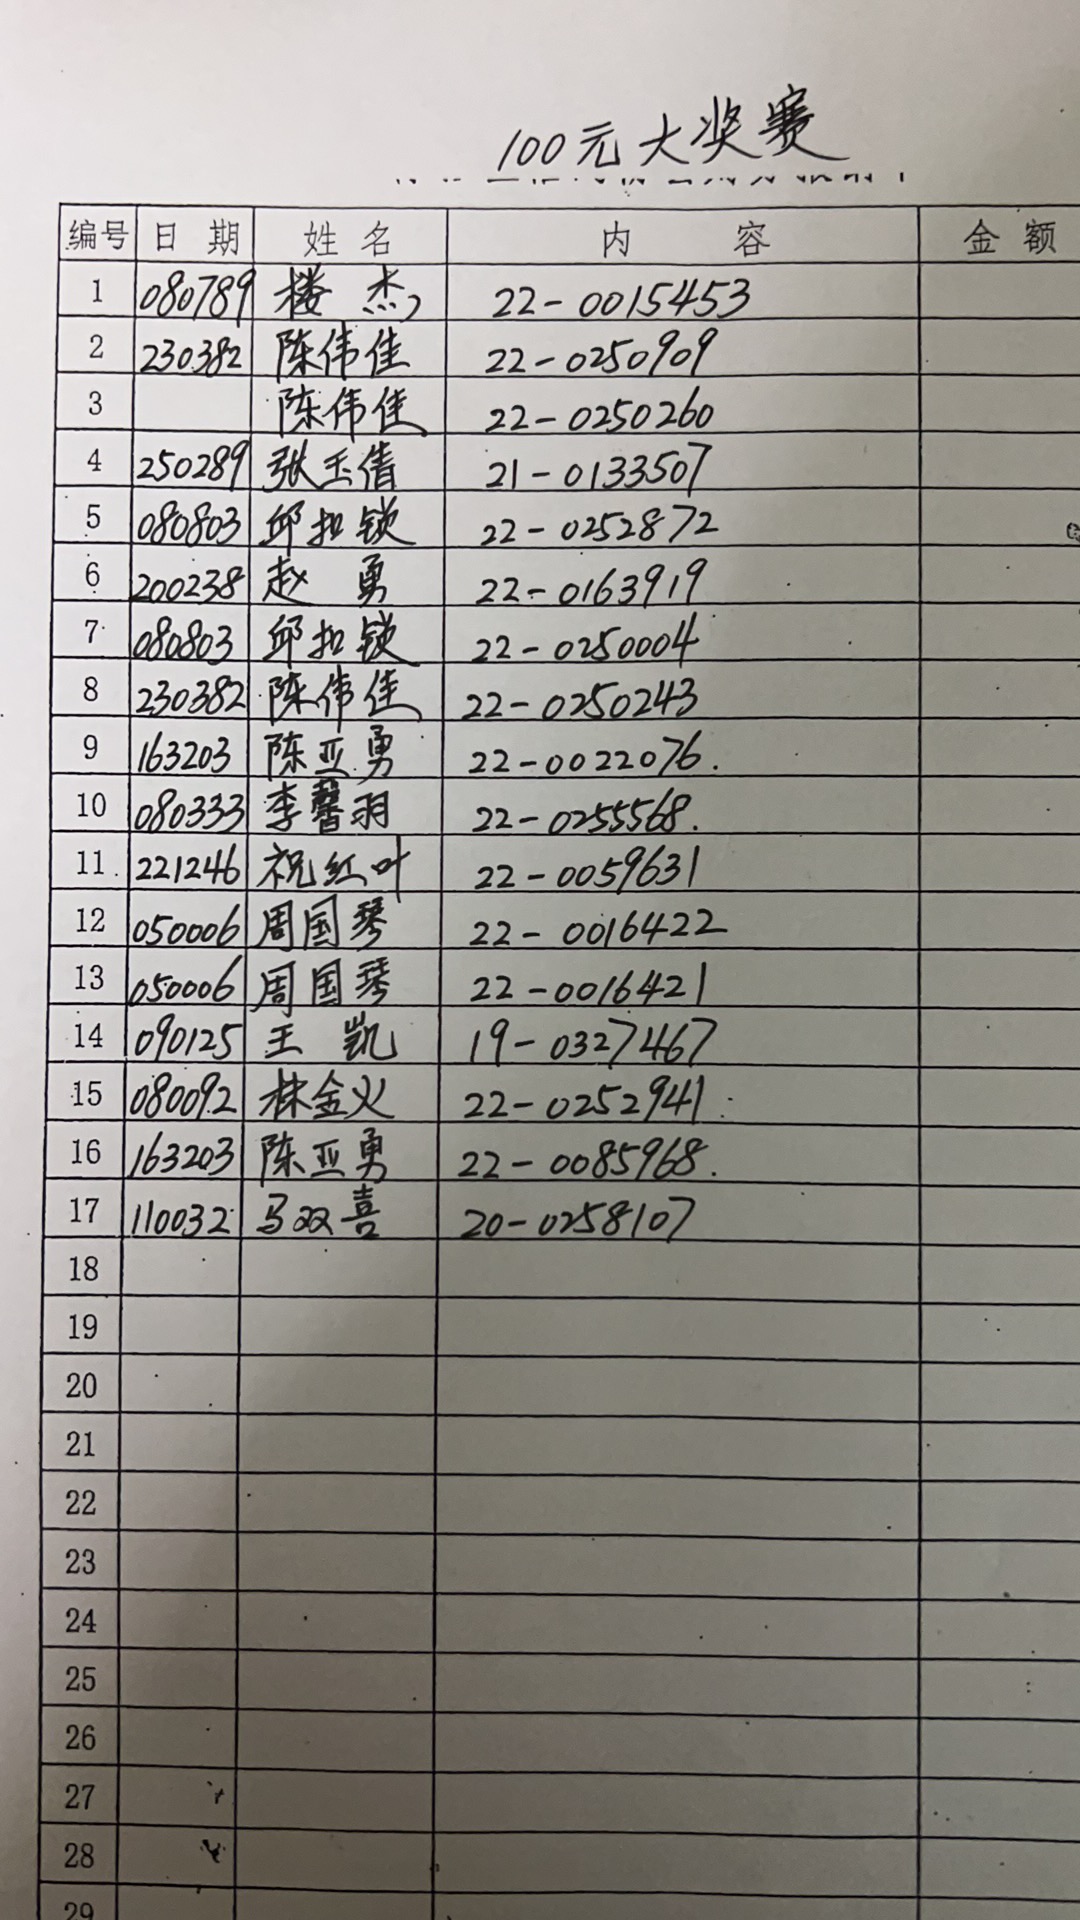 100元大奖赛
编号 日期 姓名 内容 金额
1 080789 楼杰 22-0015453
2 230382 陈伟佳 22-0250909
3 陈伟佳 22-0250260
4 250289 张玉倩 21-0133507
5 080803 邱扣锁 22-0252872
6 200238 赵勇 22-0163919
7 080803 邱扣锁 22-0250004
8 230382 陈伟佳 22-0250243
9 163203 陈亚勇 22-0022076.
10 080333 李馨羽 22-0255568.
11 221246 祝红叶 22-0059631
12 050006 周国琴 22-0016422
13 050006 周国琴 22-0016421
14 090125 王凯 19-0327467
15 080092 林金火 22-0252941
16 163203 陈亚勇 22-0085968.
17 110032 马双喜 20-0258107
18
19
20
21
22
23
24
25
26
27
28
29